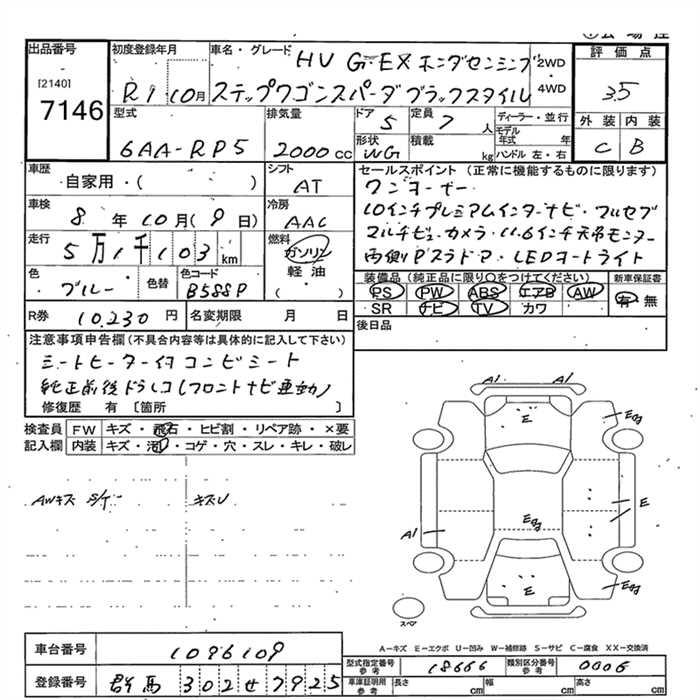 出品番号
[2140]
7146
初度登録年月
R1 10月
車名・グレード
HV G・EX ホンダセンシング
ステップワゴンスパーダブラックスタイル
2WD
・
4WD
評価点
3.5
外装 内装
C B
型式
6AA-RP5
排気量
2000cc
ドア
5
定員
7人
形状
WG
積載
kg
ディーラー・並行
モデル年式 年
ハンドル 左・右
車歴
自家用・( )
シフト
AT
車検
8年10月(9日)
冷房
AAC
走行
5万1千103km
燃料
ガソリン
軽油
( )
色
ブルー
色替
色コード
B588P
R券 10,230円
名変期限 月 日
セールスポイント (正常に機能するものに限ります)
ワンオーナー
10インチプレミアムインターナビ・フルセグ
マルチビューカメラ・11.6インチ天吊モニター
両側Pスラドア・LEDヘッドライト
装備品 (純正品に限り〇をつけてください)
PS PW ABS エアB AW
SR ナビ TV カワ
新車保証書
有・無
後日品
注意事項申告欄(不具合内容等は具体的に記入して下さい)
シートヒーター付 コンビシート
純正前後ドラレコ(フロントナビ連動)
修復歴 有 〔箇所 〕
検査員記入欄
FW キズ・飛石・ヒビ割・リペア跡・×要
内装 キズ・汚レ・コゲ・穴・スレ・キレ・破レ
AWキズ S/ケー キズU
A1
A1
E
Eg
E
A1
Eg
E
Eg
スペア
A―キズ E―エクボ U―凹み W―補修跡 S―サビ C―腐食 XX―交換済
車台番号
1096109
登録番号
群馬 302せ7925
型式指定番号 参考
18666
類別区分番号 参考
0006
車庫証明用 参考
長さ cm 幅 cm 高さ cm